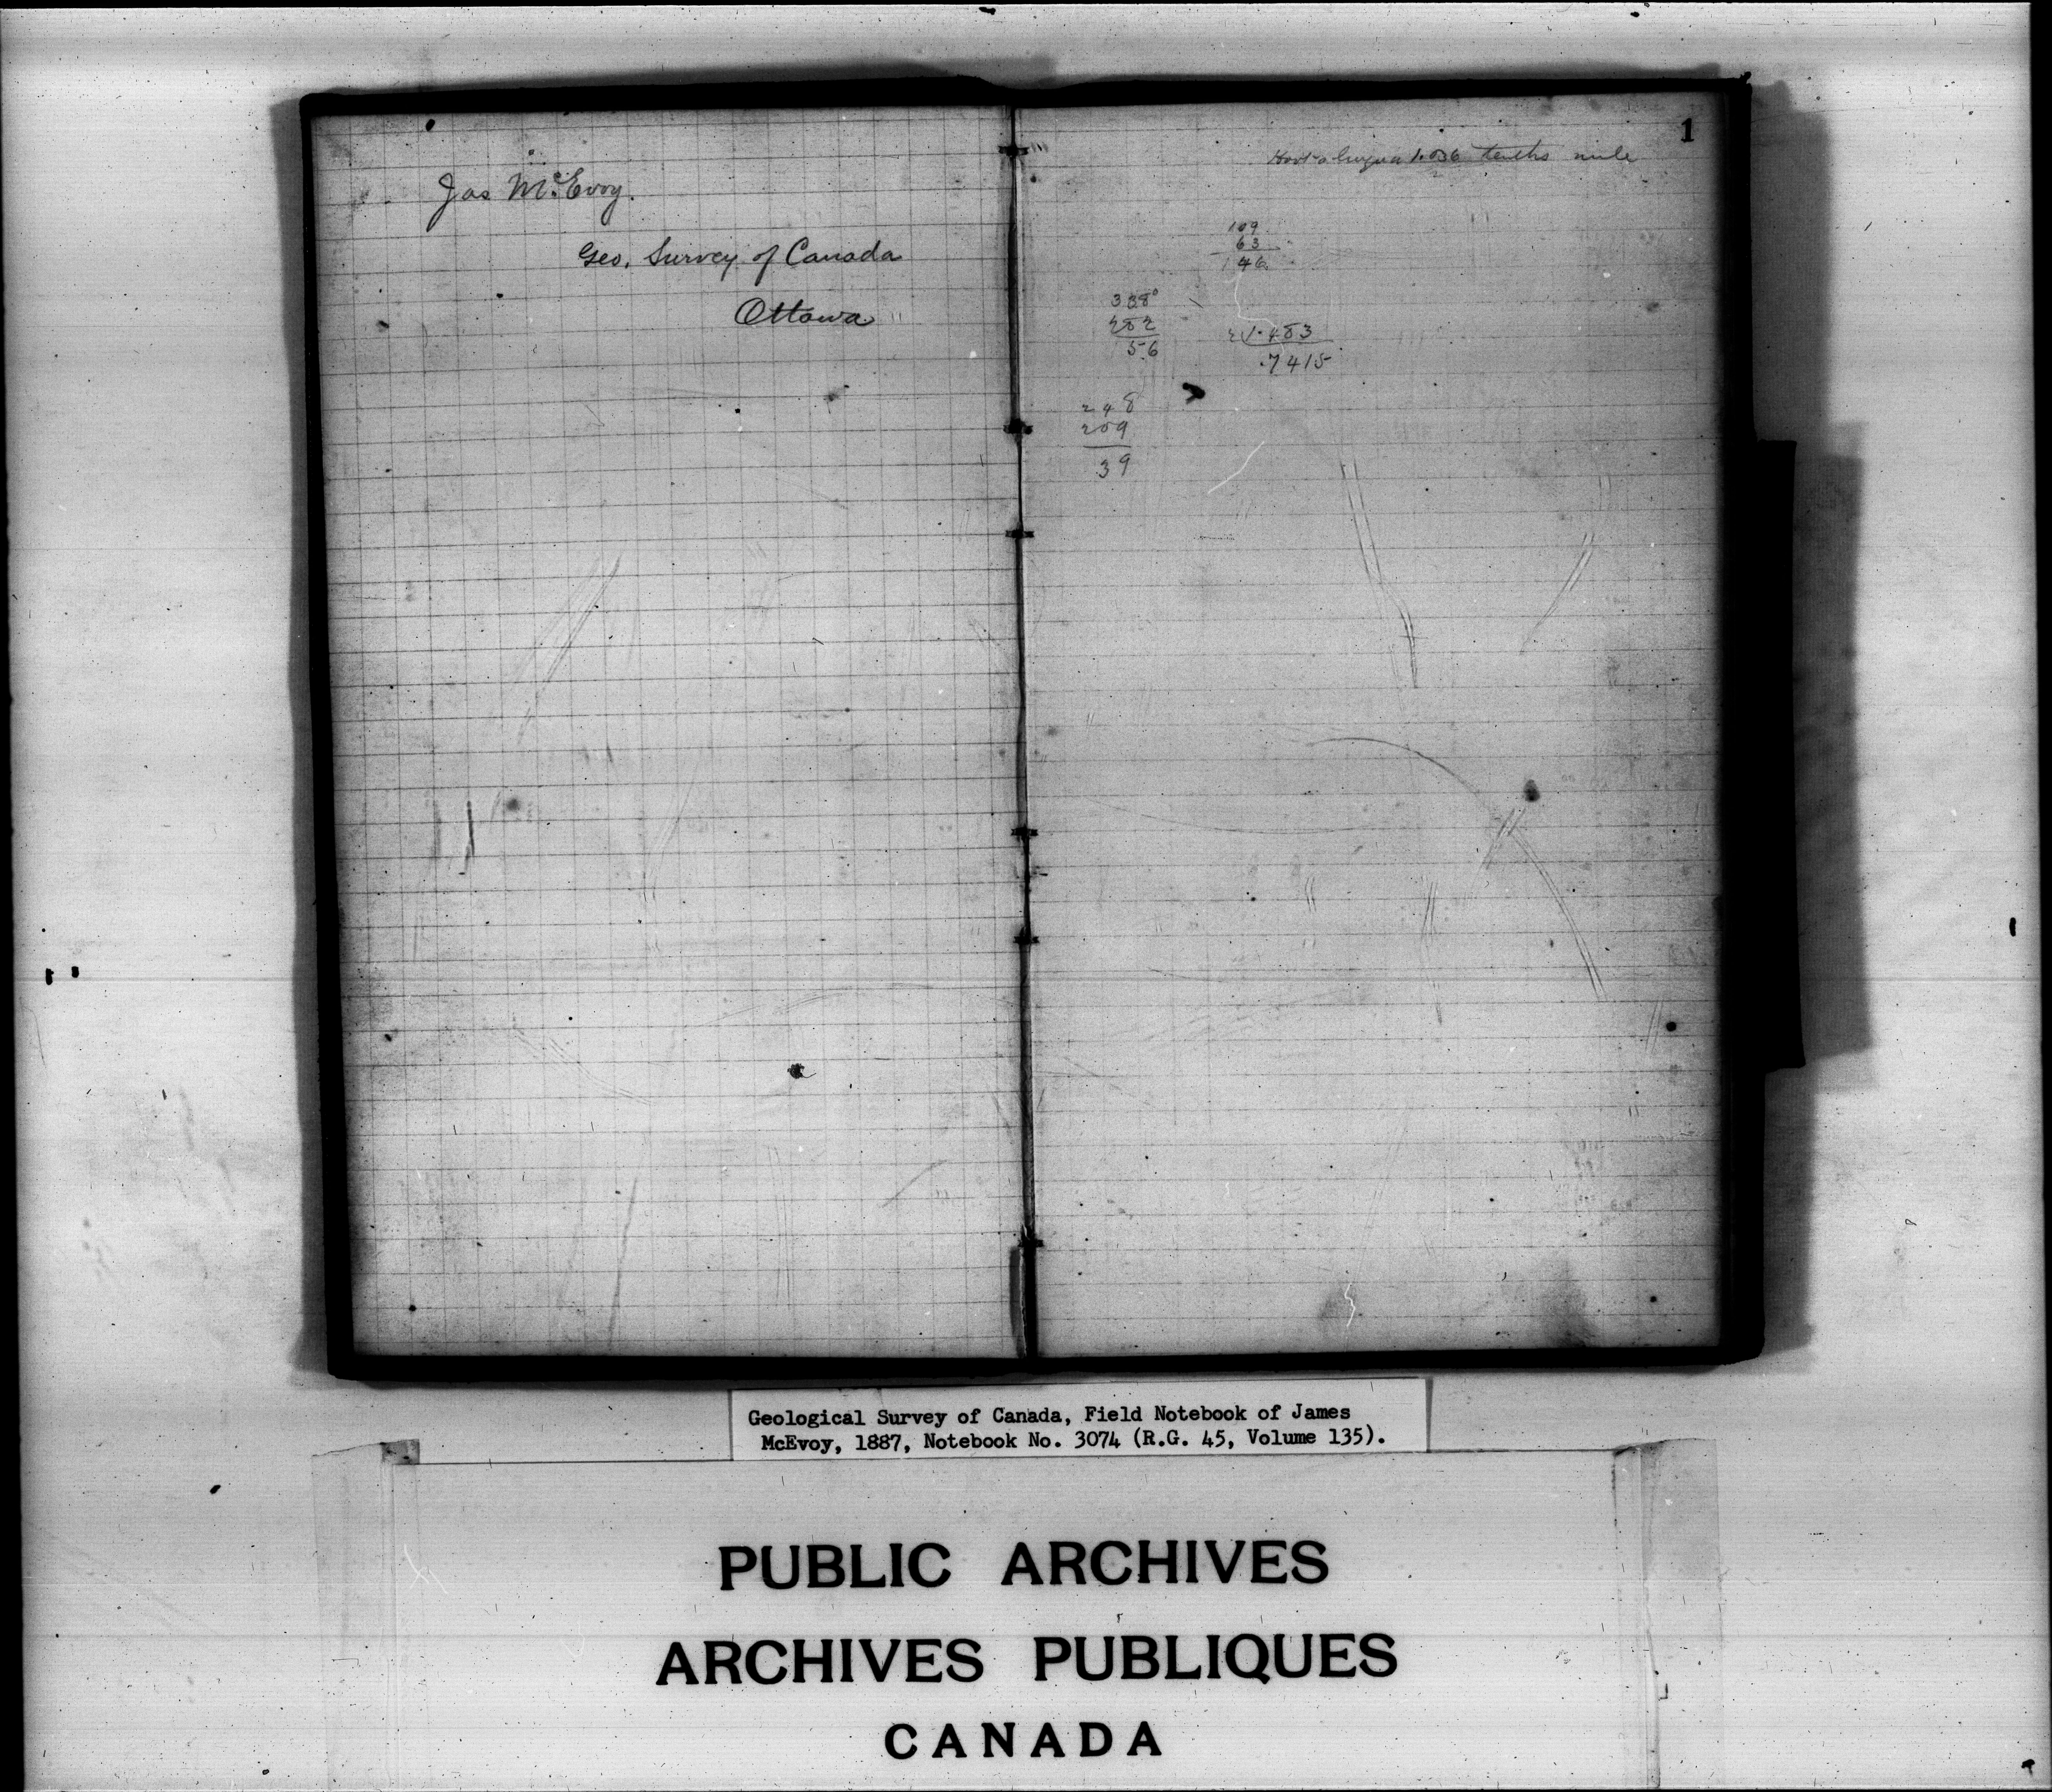 Jas McEvoy.
Geo. Survey of Canada
Ottawa
1
1.036 tenths mile
109
63
46
338°
282
56
2)1.483
.7415
248
209
39
Geological Survey of Canada, Field Notebook of James
McEvoy, 1887, Notebook No. 3074 (R.G. 45, Volume 135).
PUBLIC ARCHIVES
ARCHIVES PUBLIQUES
CANADA